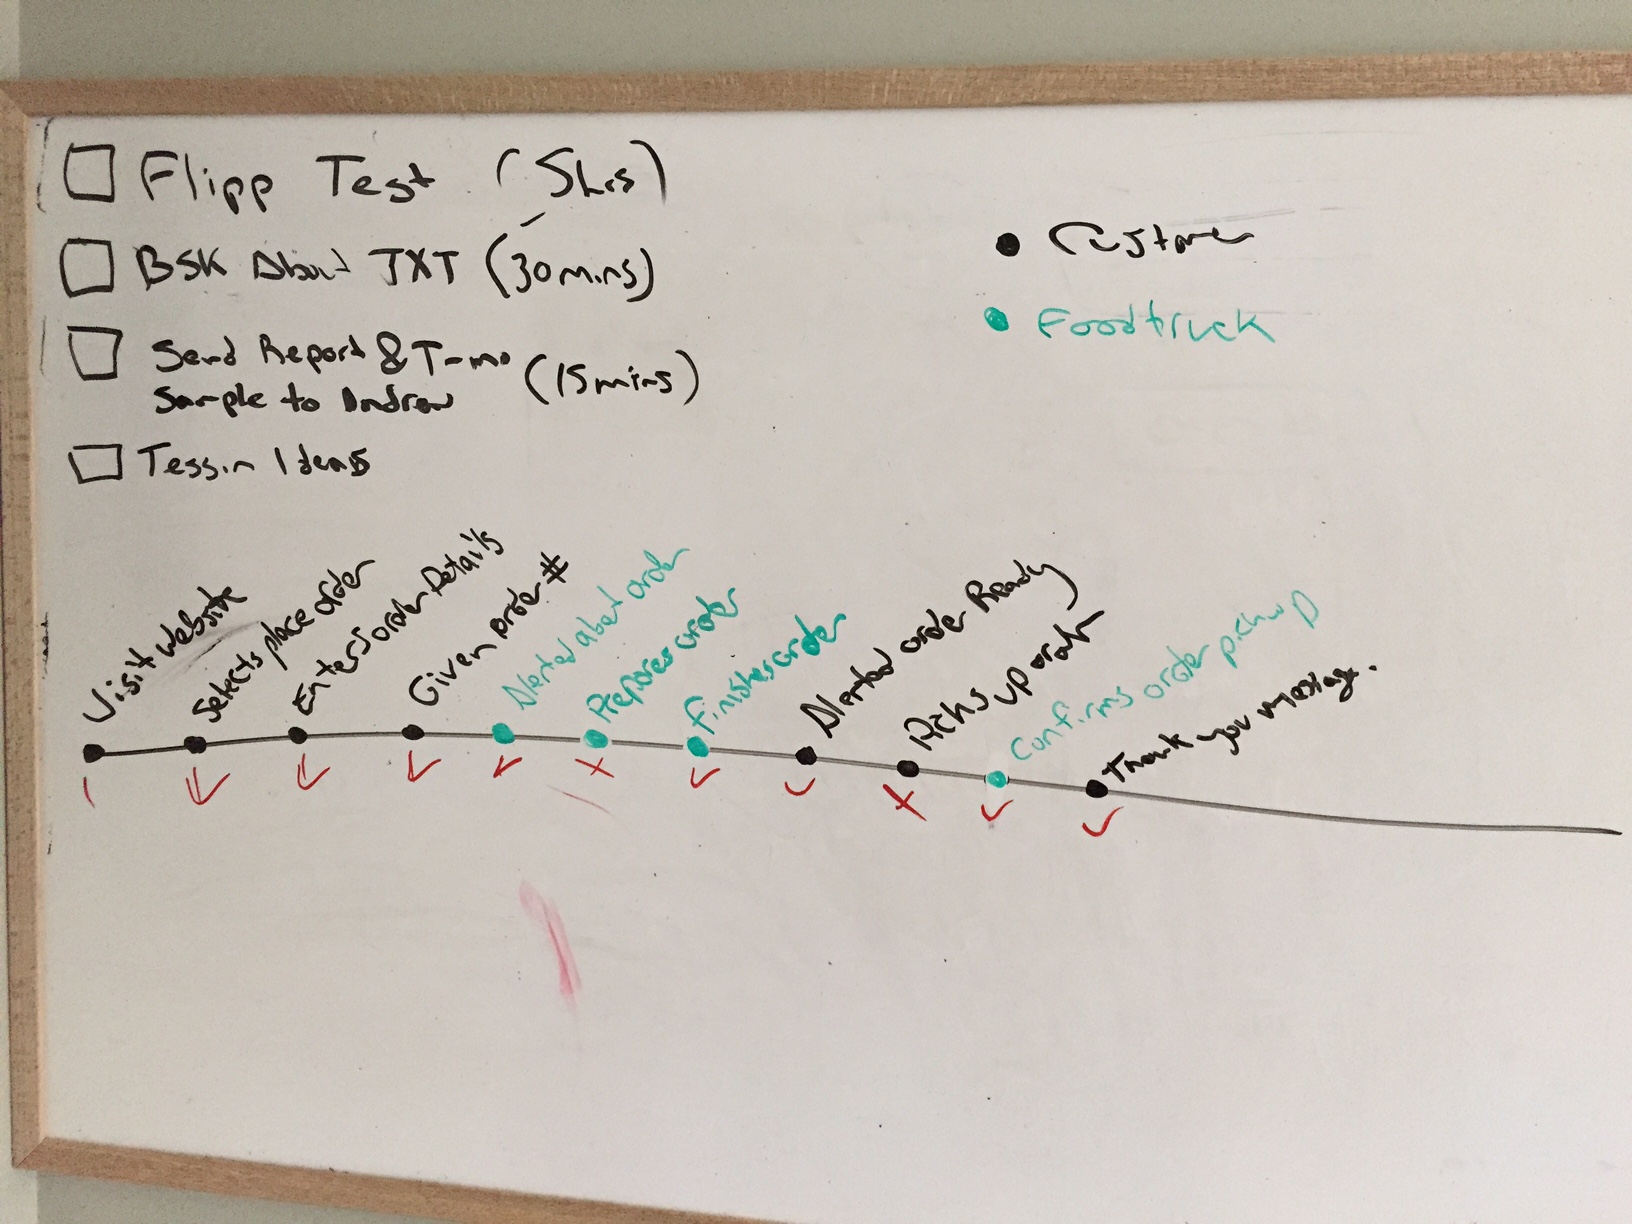 Flipp Test (5hrs)
BSK About TXT (30mins)
Send Report & T-mo
Sample to Andrew (15mins)
Tessin Ideas
Customer
Foodtruck
Visit website
Selects place order
Enters order Details
Given order #
Alerted about order
Prepares order
Finishes order
Alerted order Ready
Picks up order
Confirms order pickup
Thank you message.